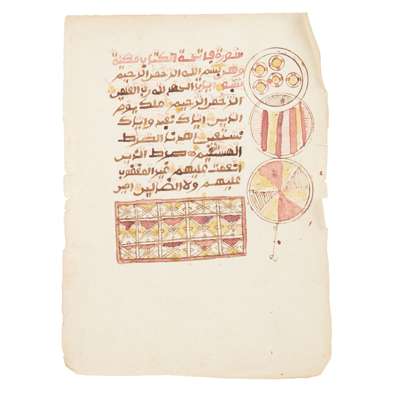 سورة فاتحة الكتاب مكية
وهي بسم الله الرحمن الرحيم
ايات الحمد لله رب العلمين
الرحمن الرحيم ملك يوم
الدين اياك نعبد واياك
نستعين اهدنا الصرط
المستقيم صرط الذين
انعمت عليهم غير المغضوب
عليهم ولا الضالين امين